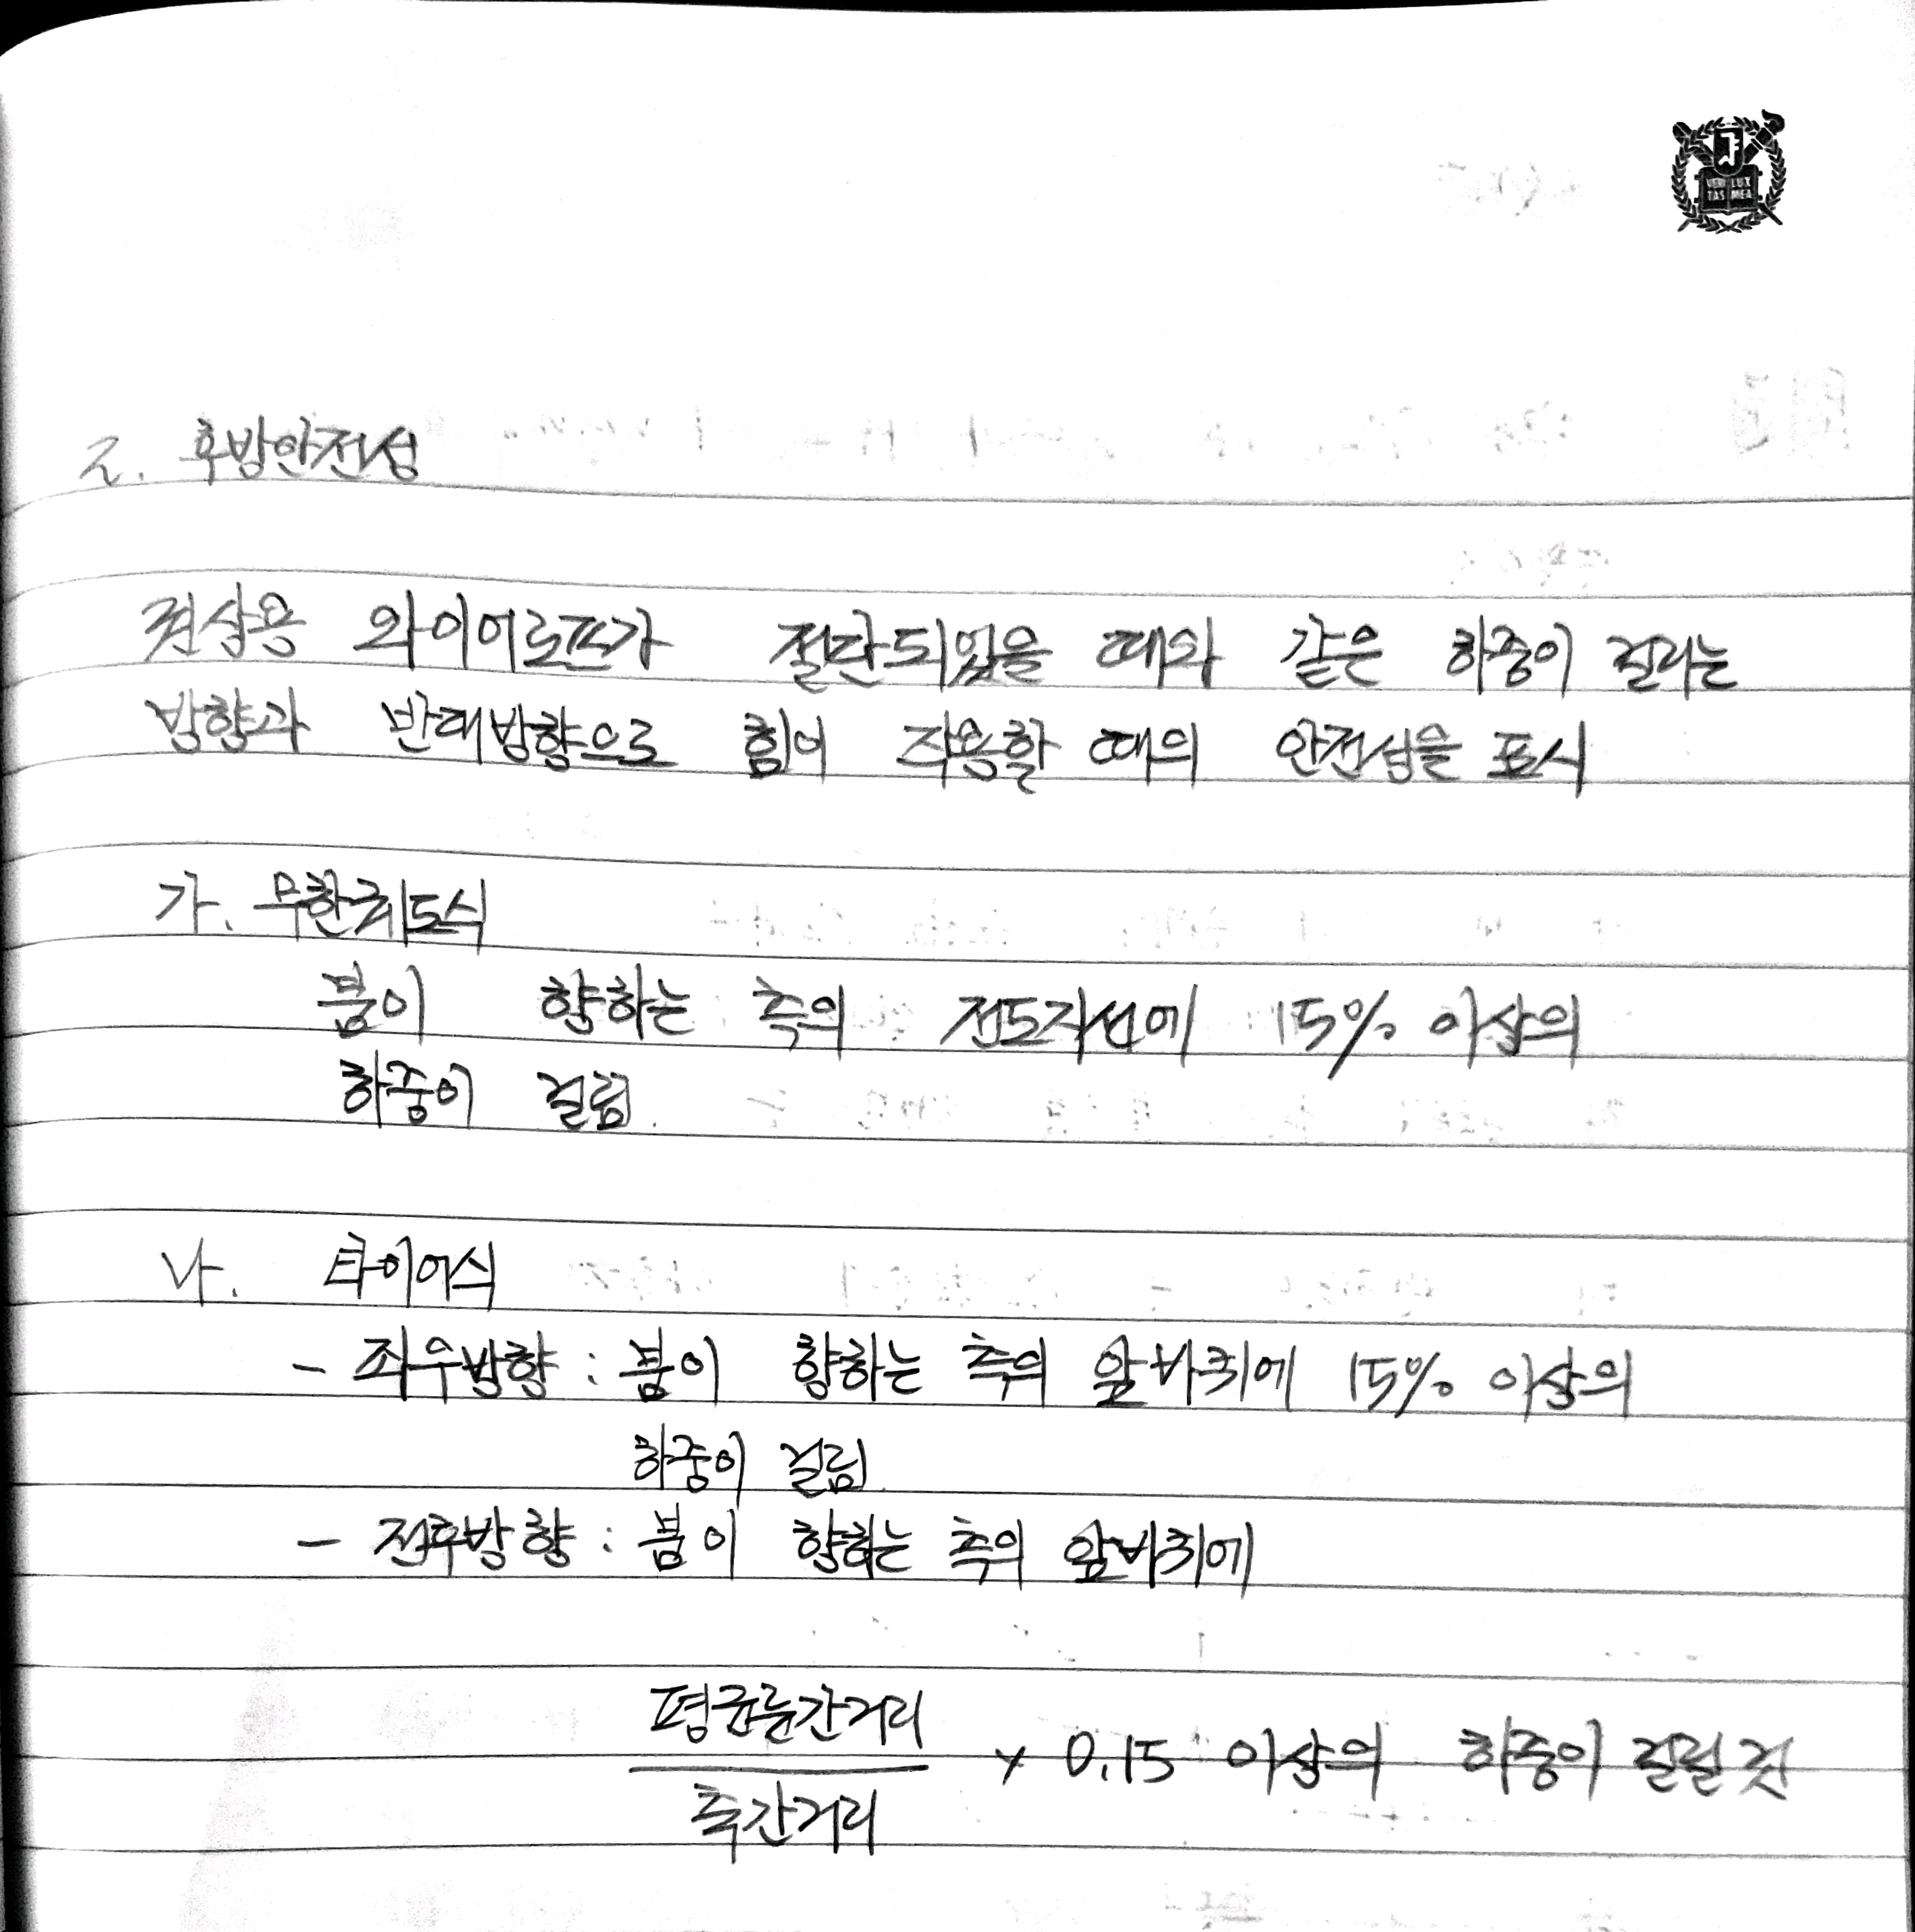 2. 후방안전성
권상용 와이어로프가 절단되었을 때와 같은 하중이 걸리는
방향과 반대방향으로 힘이 작용할 때의 안전성을 표시
가. 무한궤도식
붐이 향하는 측의 전도지선에 15% 이상의
하중이 걸림.
나. 타이어식
- 좌우방향 : 붐이 향하는 측의 앞바퀴에 15% 이상의
하중이 걸림.
- 전후방향 : 붐이 향하는 측의 앞바퀴에
평균륜간거리
× 0.15 이상의 하중이 걸릴 것
축간거리